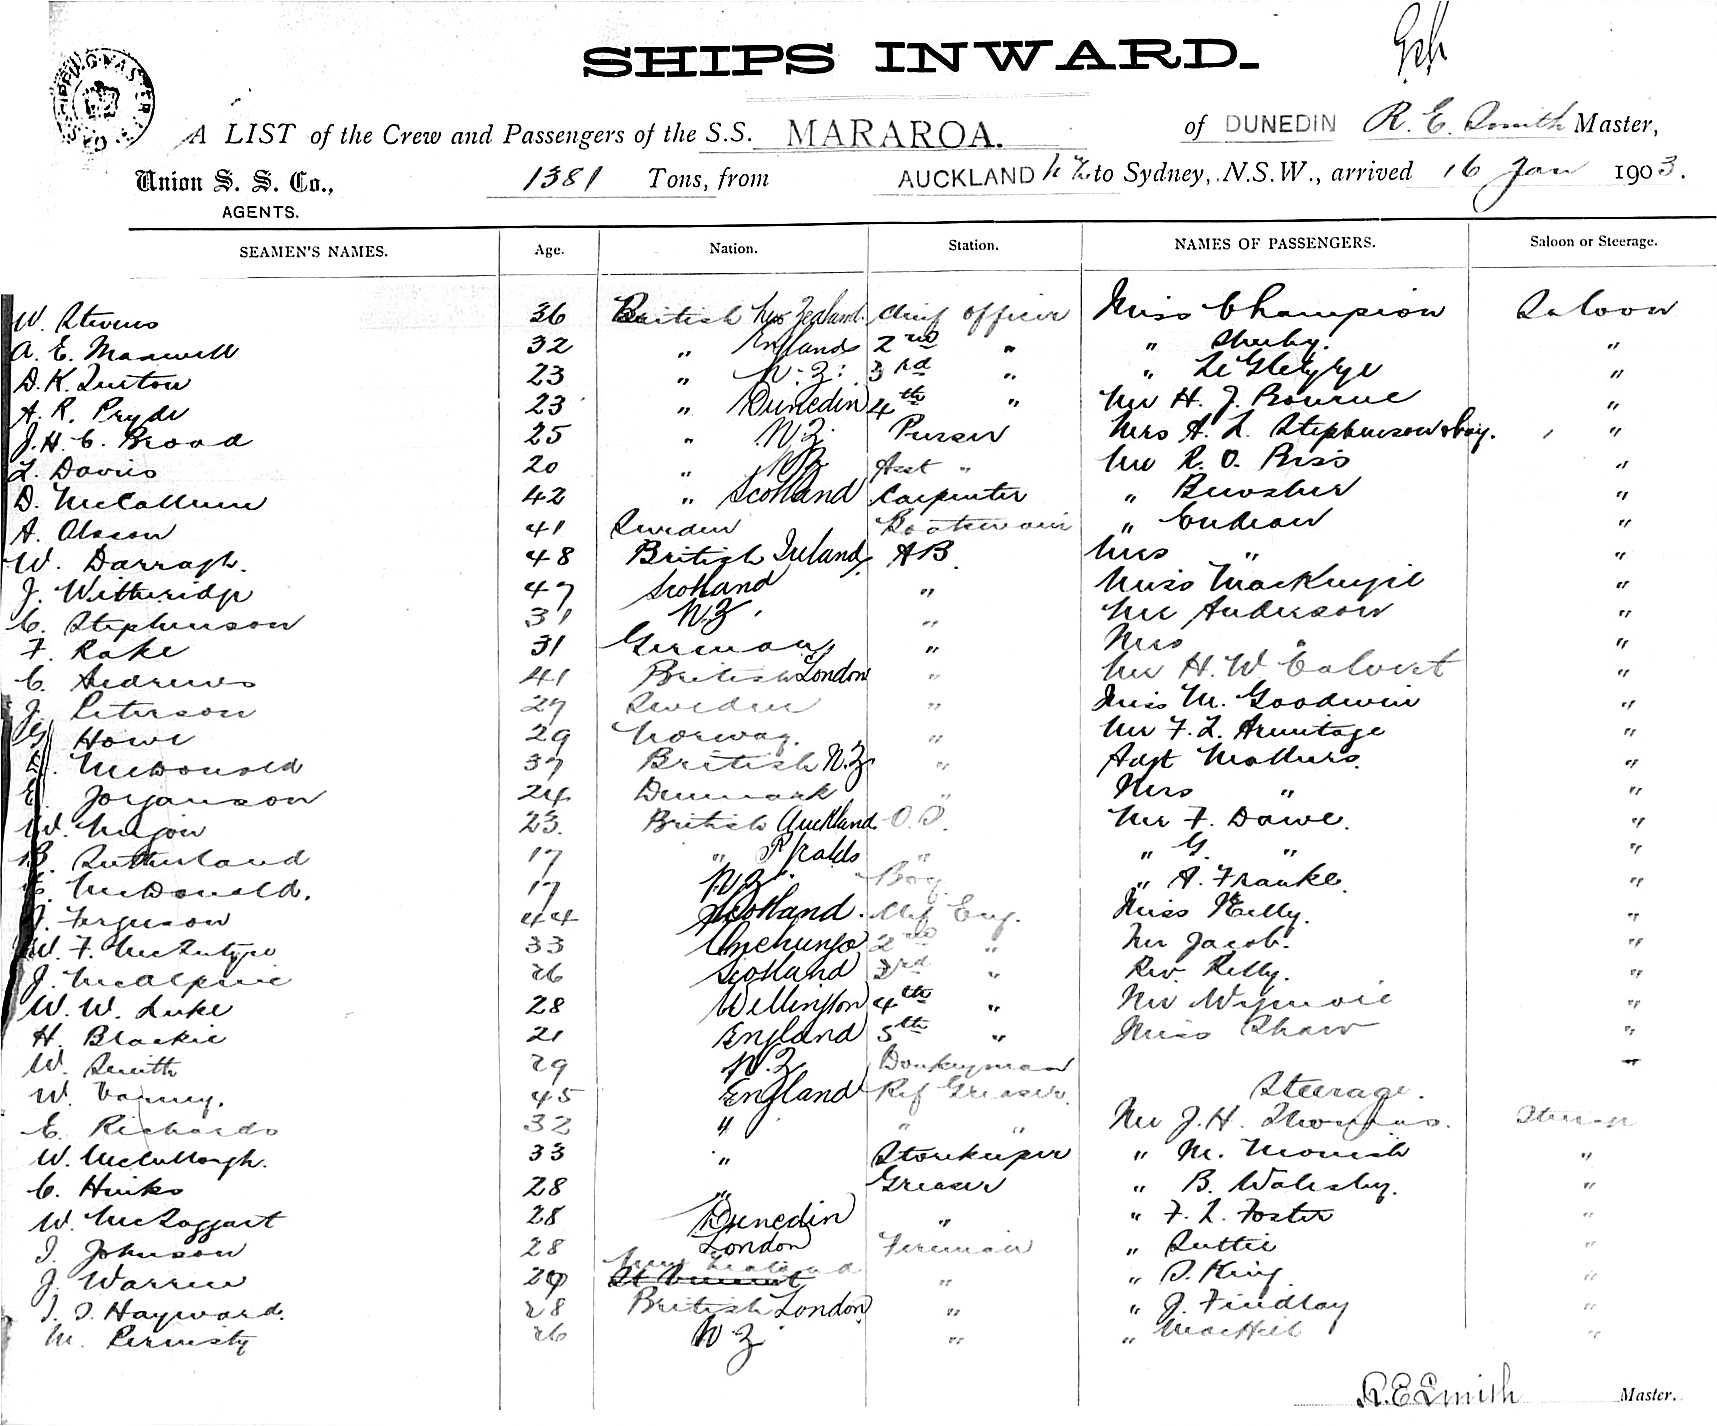 SHIPS INWARD.
A LIST of the Crew and Passengers of the S.S. MARAROA. of DUNEDIN R. E. Smith Master,
Union S. S. Co., 1381 Tons, from AUCKLAND to Sydney, N.S.W., arrived 16 Jan 1903.
AGENTS.
SEAMEN'S NAMES. Age. Nation. Station. NAMES OF PASSENGERS. Saloon or Steerage.
W. Stevens 36 British New Zealand Chief Officer Miss Champion Saloon
A. E. Maxwell 32 " England 2nd " " "
D. K. 23 " N.Z. 3rd " " "
A. R. Pryde 23 " Dunedin 4th " Mr H. J. Bourne "
J. H. C. Broad 25 " N.Z. Purser Mrs A. L. Stephenson & boy. "
L. Davies 20 " N.Z. Asst " Mr R. O. Biss "
D. McCallum 42 " Scotland Carpenter " Bewsher "
A. Olsson 41 Sweden Boatswain " "
W. Darragh. 48 British Ireland AB. Mrs " "
J. Witheridge 47 Scotland " Miss MacKenzie "
C. Stephenson 31 N.Z. " Mr Anderson "
F. Rake 31 German " Mrs " "
C. Andrews 41 British London " Mr H. W. Calvert "
J. Peterson 27 Sweden " Miss M. Goodwin "
Howe 29 Norway " Mr F. L. Armitage "
McDonald 37 British N.Z. " Adjt Mathers "
E. Jorganson 24 Denmark " Mrs " "
W. 23. British Auckland O.S. Mr F. Dawe. "
Sutherland 17 " " " G. " "
McDonald. 17 N.Z. Boy " A. Franke. "
J. Ferguson 44 Scotland. Chf Eng. Miss Kelly. "
W. F. McIntyre 33 Onehunga 2nd " Mr Jacob. "
J. McAlpine 26 Scotland 3rd " Rev. Kelly. "
W. W. Luke 28 Wellington 4th " Mr "
H. Blackie 21 England 5th " Miss Shaw "
W. Smith 29 N.Z. Donkeyman "
W. Varney. 45 England Ref Greaser. Steerage.
E. Richards 32 " " " Mr J. H. Thompson. Steerage
W. McCullough. 33 " Storekeeper " M. "
C. Hinks 28 " Greaser " B. Walesby. "
W. McTaggart 28 Dunedin " " F. L. Foster "
J. Johnson 28 London Fireman " Suttie "
J. Warren 29 New Zealand St Vincent " " King "
Hayward. 28 British London " " J. Findlay "
M. 26 N.Z. " " "
R. E. Smith Master.